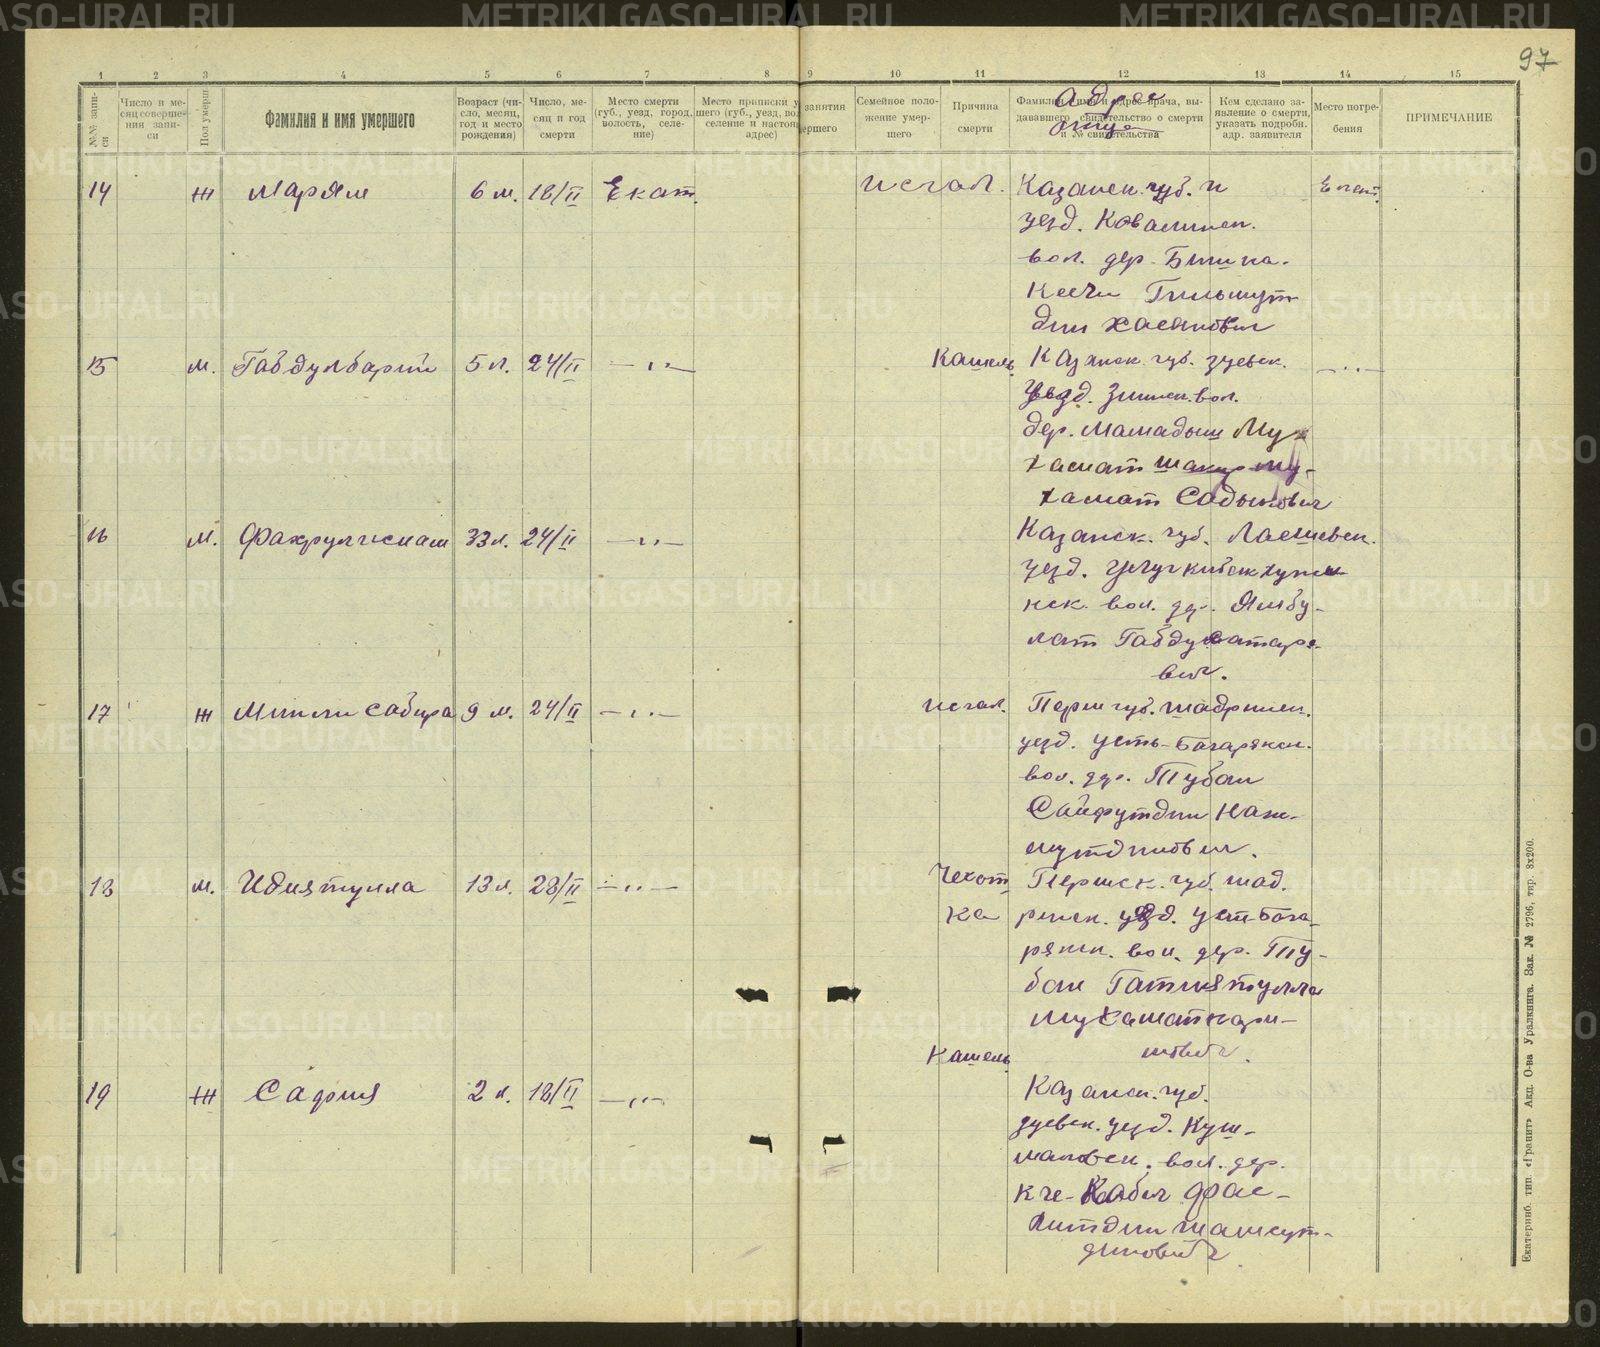 97
1 2 3 4 5 6 7 8 9 10 11 12 13 14 15
№№ записи
Число и месяц совершения записи
Пол умерш.
Фамилия и имя умершего
Возраст (число, месяц, год и место рождения)
Число, месяц и год смерти
Место смерти (губ., уезд, город, волость, селение)
Место приписки у
шего (губ., уезд, вол
селение и настоящ
адрес)
занятия
ершего
Семейное положение умершего
Причина смерти
Фамилия, имя и адрес врача, выдававшего свидетельство о смерти и № свидетельства
Адрес
отца
Кем сделано заявление о смерти, указать подробн. адр. заявителя
Место погребения
ПРИМЕЧАНИЕ
14 ж Марям 6 м. 18/II Екат. исхол. Казанск. губ. и Екат.
уезд. Ковалинск.
вол. дер.
Гильмут
дин Хасанович
15 м. Габдулбарый 5 л. 24/II —〃— Кашель Казанск. губ. зуевск. —〃—
уезд. вол.
дер. Мамадыш Му
хамат Шакир Му-
хамат Садыкович
16 м. 33 л. 24/II —〃— Казанск. губ. Лаешевск.
уезд.
нск. вол. др. Ямбу-
лат
вич.
17 ж Минлисабира 9 м. 24/II —〃— исхол. Перм губ. Шадринск.
уезд. Усть-Багарякск.
вол. др. Тубан
Сайфутдин Наж-
мутдинович.
18 м. Идиятулла 13 л. 28/II —〃— Чехот Пермск. губ. Шад.
ка ринск. уезд. Уст-Бага-
рякск. вол. дер. Ту-
бан Гатиятулла
Мухаматкари-
мович.
19 ж Сафия 2 л. 18/II —〃— Кашель Казанск. губ.
зуевск. уезд. Куш-
маковск. вол. дер.
Фас-
хитдин Шамсут-
динович
Екатеринб. тип. «Гранит» Акц. О-ва Уралкнига. Зак. № 2796, тир. 8х200.
METRIKI.GASO-URAL.RU